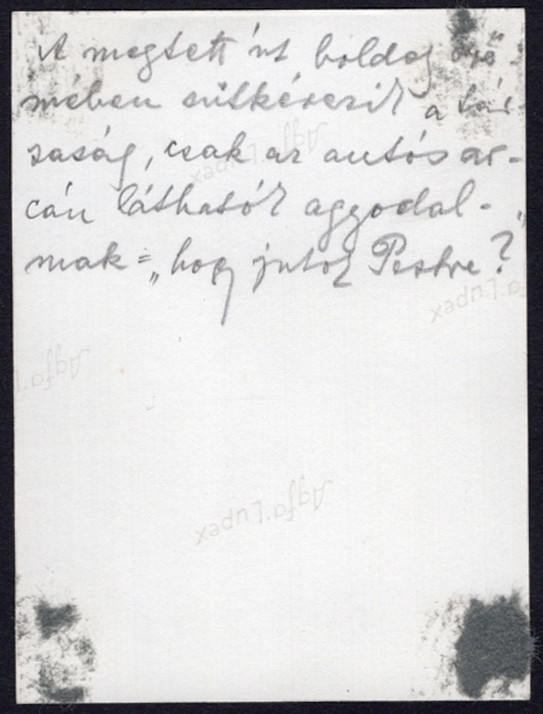 A megtett út boldog örö-
mében sütkérezik a tár-
saság, csak az autós ar-
cán láthatók aggodal-
mak = „hogy jutok Pestre?"
Agfa Lupex
Agfa Lupex
Agfa Lupex
Agfa